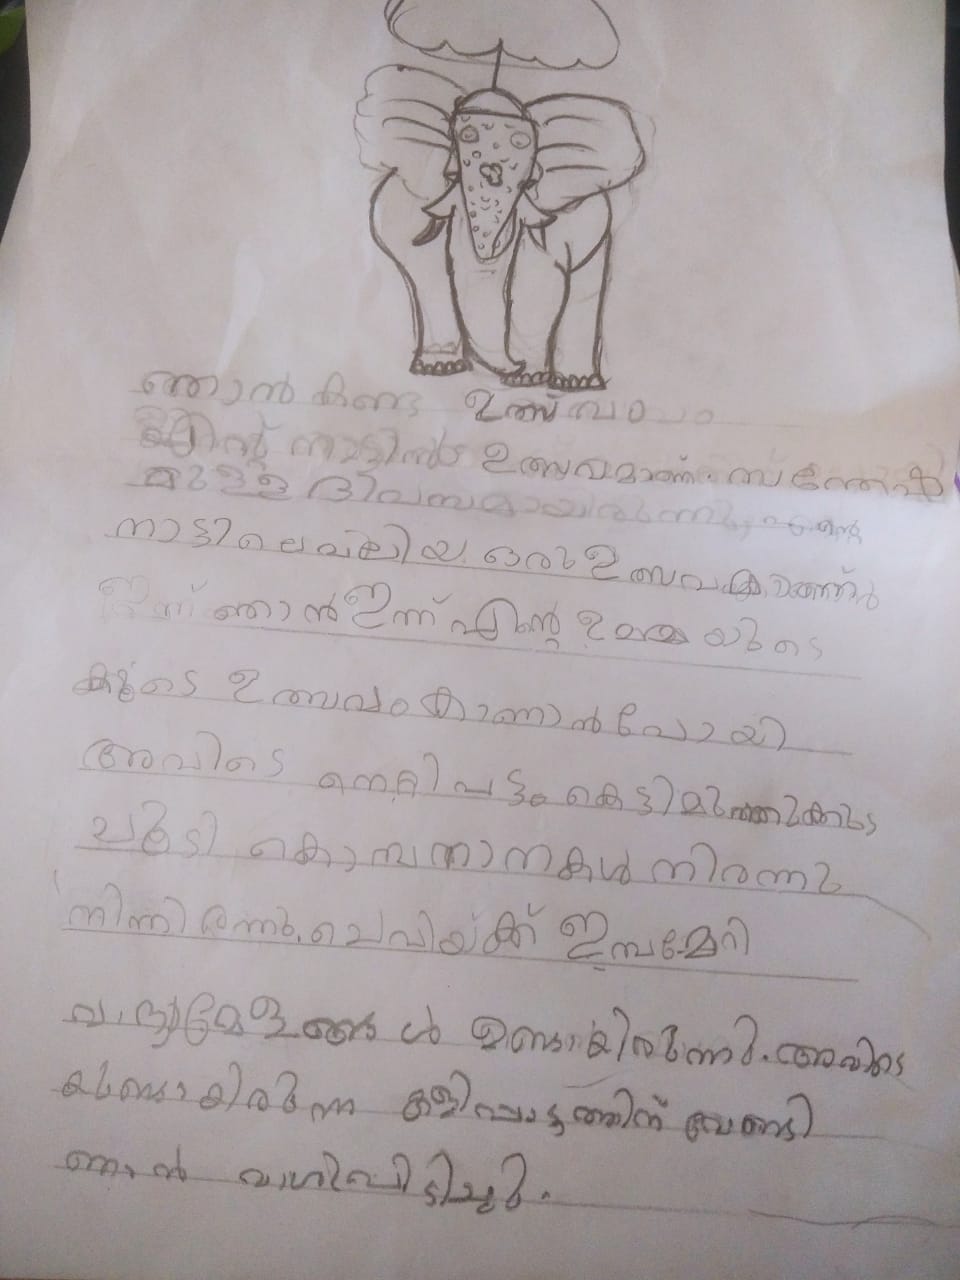 ഞാൻ കണ്ട ഉത്സവം
നാട്ടിൽ ഉത്സവമാണ്. സന്തോഷ
മുള്ള ദിവസമായിരുന്നു എന്റെ
നാട്ടിലെ വലിയ ഒരു ഉത്സവമാണ്
ഇന്ന് ഞാൻ ഇന്ന് എന്റെ ഉമ്മയുടെ
കൂടെ ഉത്സവം കാണാൻ പോയി
അവിടെ നെറ്റിപട്ടം കെട്ടി മുത്തുകുട
ചൂടി കൊമ്പനാനകൾ നിരന്നു
നിന്നിരന്നു. ചെവിയ്ക്ക് ഇമ്പമേറി
വാദ്യമേളങ്ങൾ ഉണ്ടായിരുന്നു. അവിടെ
യുണ്ടായിരുന്ന കളിപ്പാട്ടത്തിന് വേണ്ടി
ഞാൻ വാശിപിടിച്ചു.